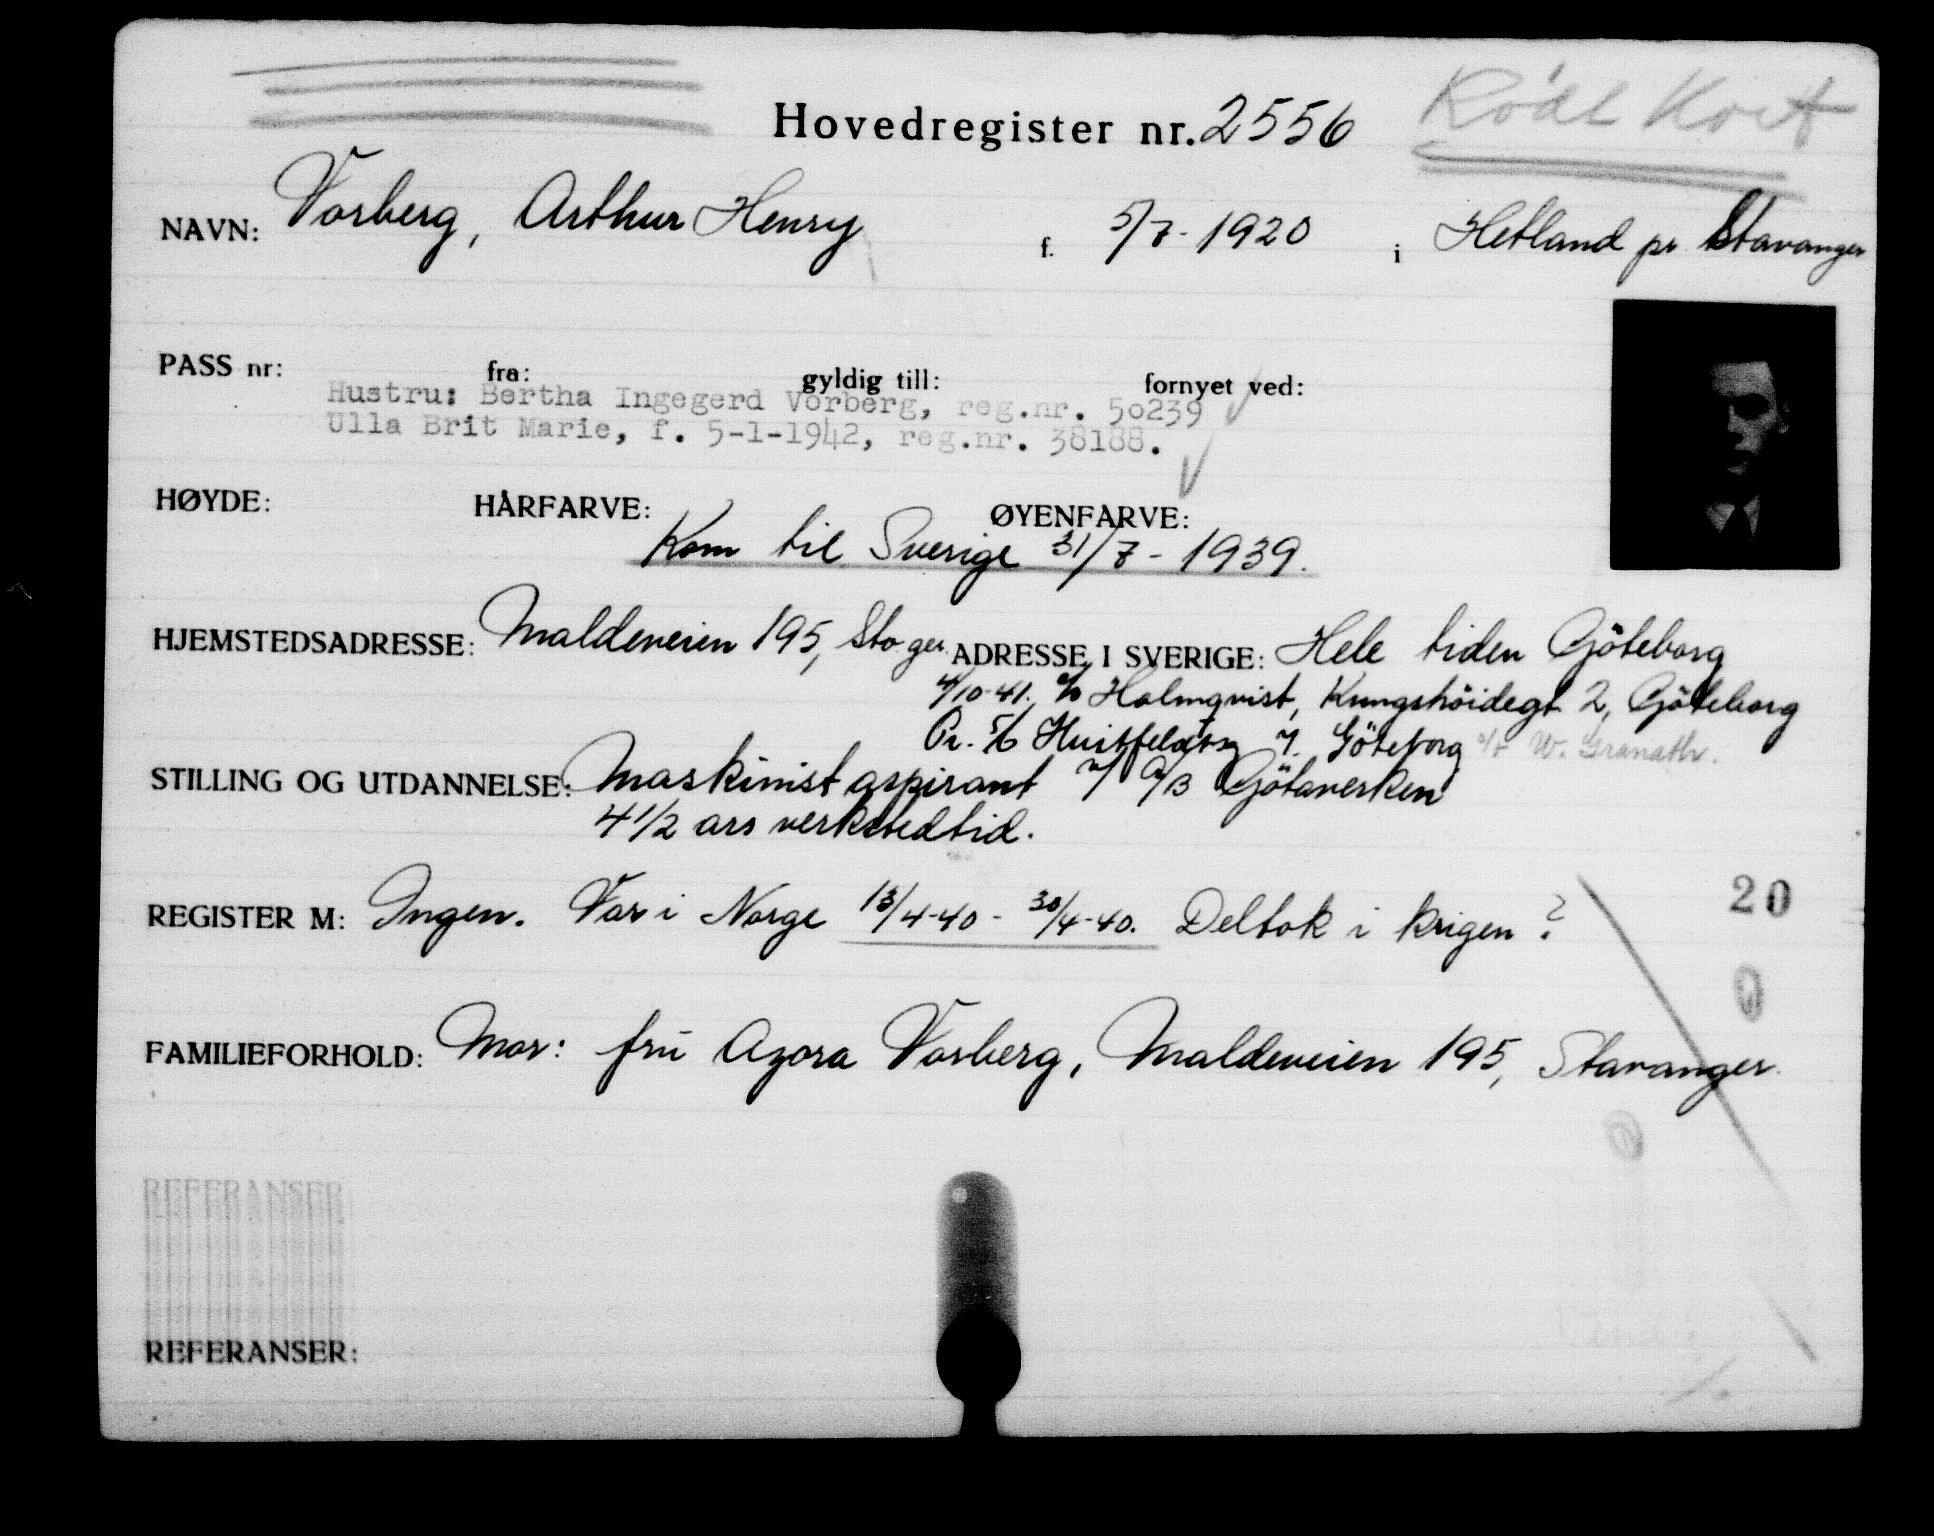 Rödt Kort
Hovedregister nr. 2556
NAVN: Vorberg, Arthur Henry f. 5/7-1920 i Hetland pr Stavanger
PASS nr: fra: gyldig till: fornyet ved:
Hustru: Bertha Ingegerd Vorberg, reg.nr. 50239
Ulla Brit Marie, f. 5-1-1942, reg.nr. 38188.
HØYDE: HÅRFARVE: ØYENFARVE:
Kom til Sverige 31/7-1939.
HJEMSTEDSADRESSE: Maldeveien 195, Stavanger ADRESSE I SVERIGE: Hele tiden Göteborg
4/10-41. c/o Holmqvist, Kungshöidegt 2, Göteborg
Pr. 5/6 Huitfeldtsg 7. Göteborg c/o W. Granath.
STILLING OG UTDANNELSE: Maskinistaspirant v/ A/B Götaverken
4 1/2 ars verkstedtid.
REGISTER M: Ingen. Var i Norge 13/4-40 - 30/4-40. Deltok i krigen?
20
FAMILIEFORHOLD: Mor: fru Agora Vorberg, Maldeveien 195, Stavanger
REFERANSER
REFERANSER: